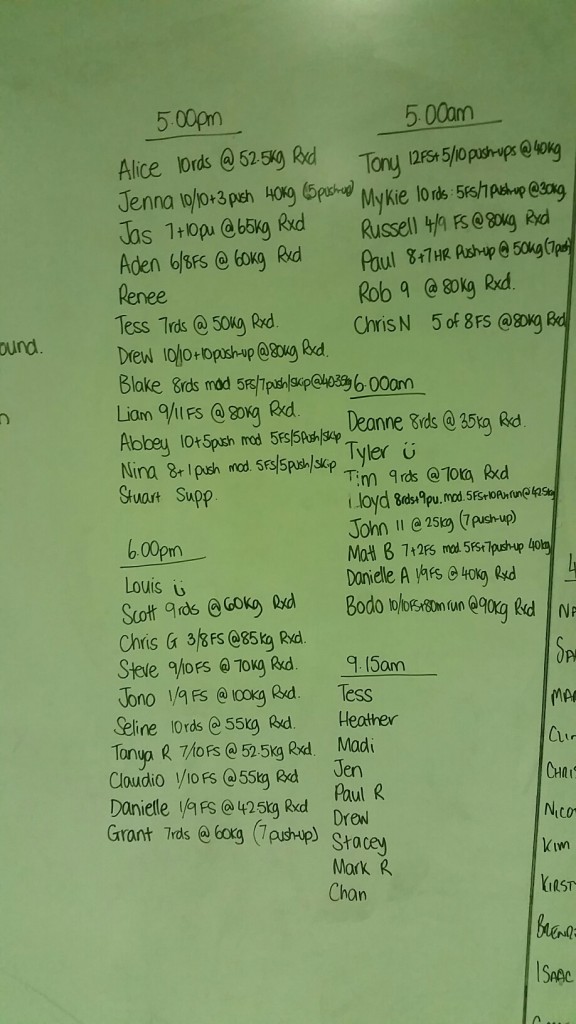 5.00pm
Alice 10rds @ 52.5kg Rxd
Jenna 10/10+3push 40kg (5pushup)
Jas 7+10pu @65kg Rxd
Aden 6/8FS @ 60kg Rxd
Renee
Tess 7rds @ 50kg Rxd.
Drew 10/10+10push-up@80kg Rxd.
Blake 8rds mod 5FS/7push/skip@40
Liam 9/11 FS @ 80kg Rxd.
Abbey 10+5push mod 5FS/5Push/skip
Nina 8+1push mod. 5FS/5push/skip
Stuart Supp.
6.00pm
Louis
Scott 9rds @60kg Rxd
Chris G 3/8FS@85kg Rxd.
Steve 9/10FS @ 70kg Rxd.
Jono 1/9 FS @100kg Rxd.
Seline 10rds @ 55kg Rxd.
Tanya R 7/10FS @ 52.5kg Rxd.
Claudio 1/10FS @55kg Rxd
Danielle 1/9FS @ 42.5kg Rxd
Grant 7rds @ 60kg (7push-up)
5.00am
Tony 12FS+5/10push-ups@40kg
Mykie 10rds: 5FS/7pushup@30kg
Russell 4/9 FS@80kg Rxd
Paul 8+7HR Push-up @ 50kg(7push
Rob 9 @80kg Rxd.
Chris N 5 of 8FS @80kg Rxd
6.00am
Deanne 8rds @ 35kg Rxd.
Tyler
Tim 9rds @70kg Rxd
Lloyd 8rds+9pu. mod. 5FS+10Pu+run@42.5kg
John 11 @ 25kg (7push-up)
Matt B 7+2FS mod. 5FS+7push-up 40kg
Danielle A 1/9FS @ 40kg Rxd
Bodo 10/10FS+80m run @90kg Rxd
9.15am
Tess
Heather
Madi
Jen
Paul R
Drew
Stacey
Mark R
Chan
ound.
n
4
NA
SA
MA
CLI
CHRIS
NICO
KIM
KIRST
BREND
ISAAC